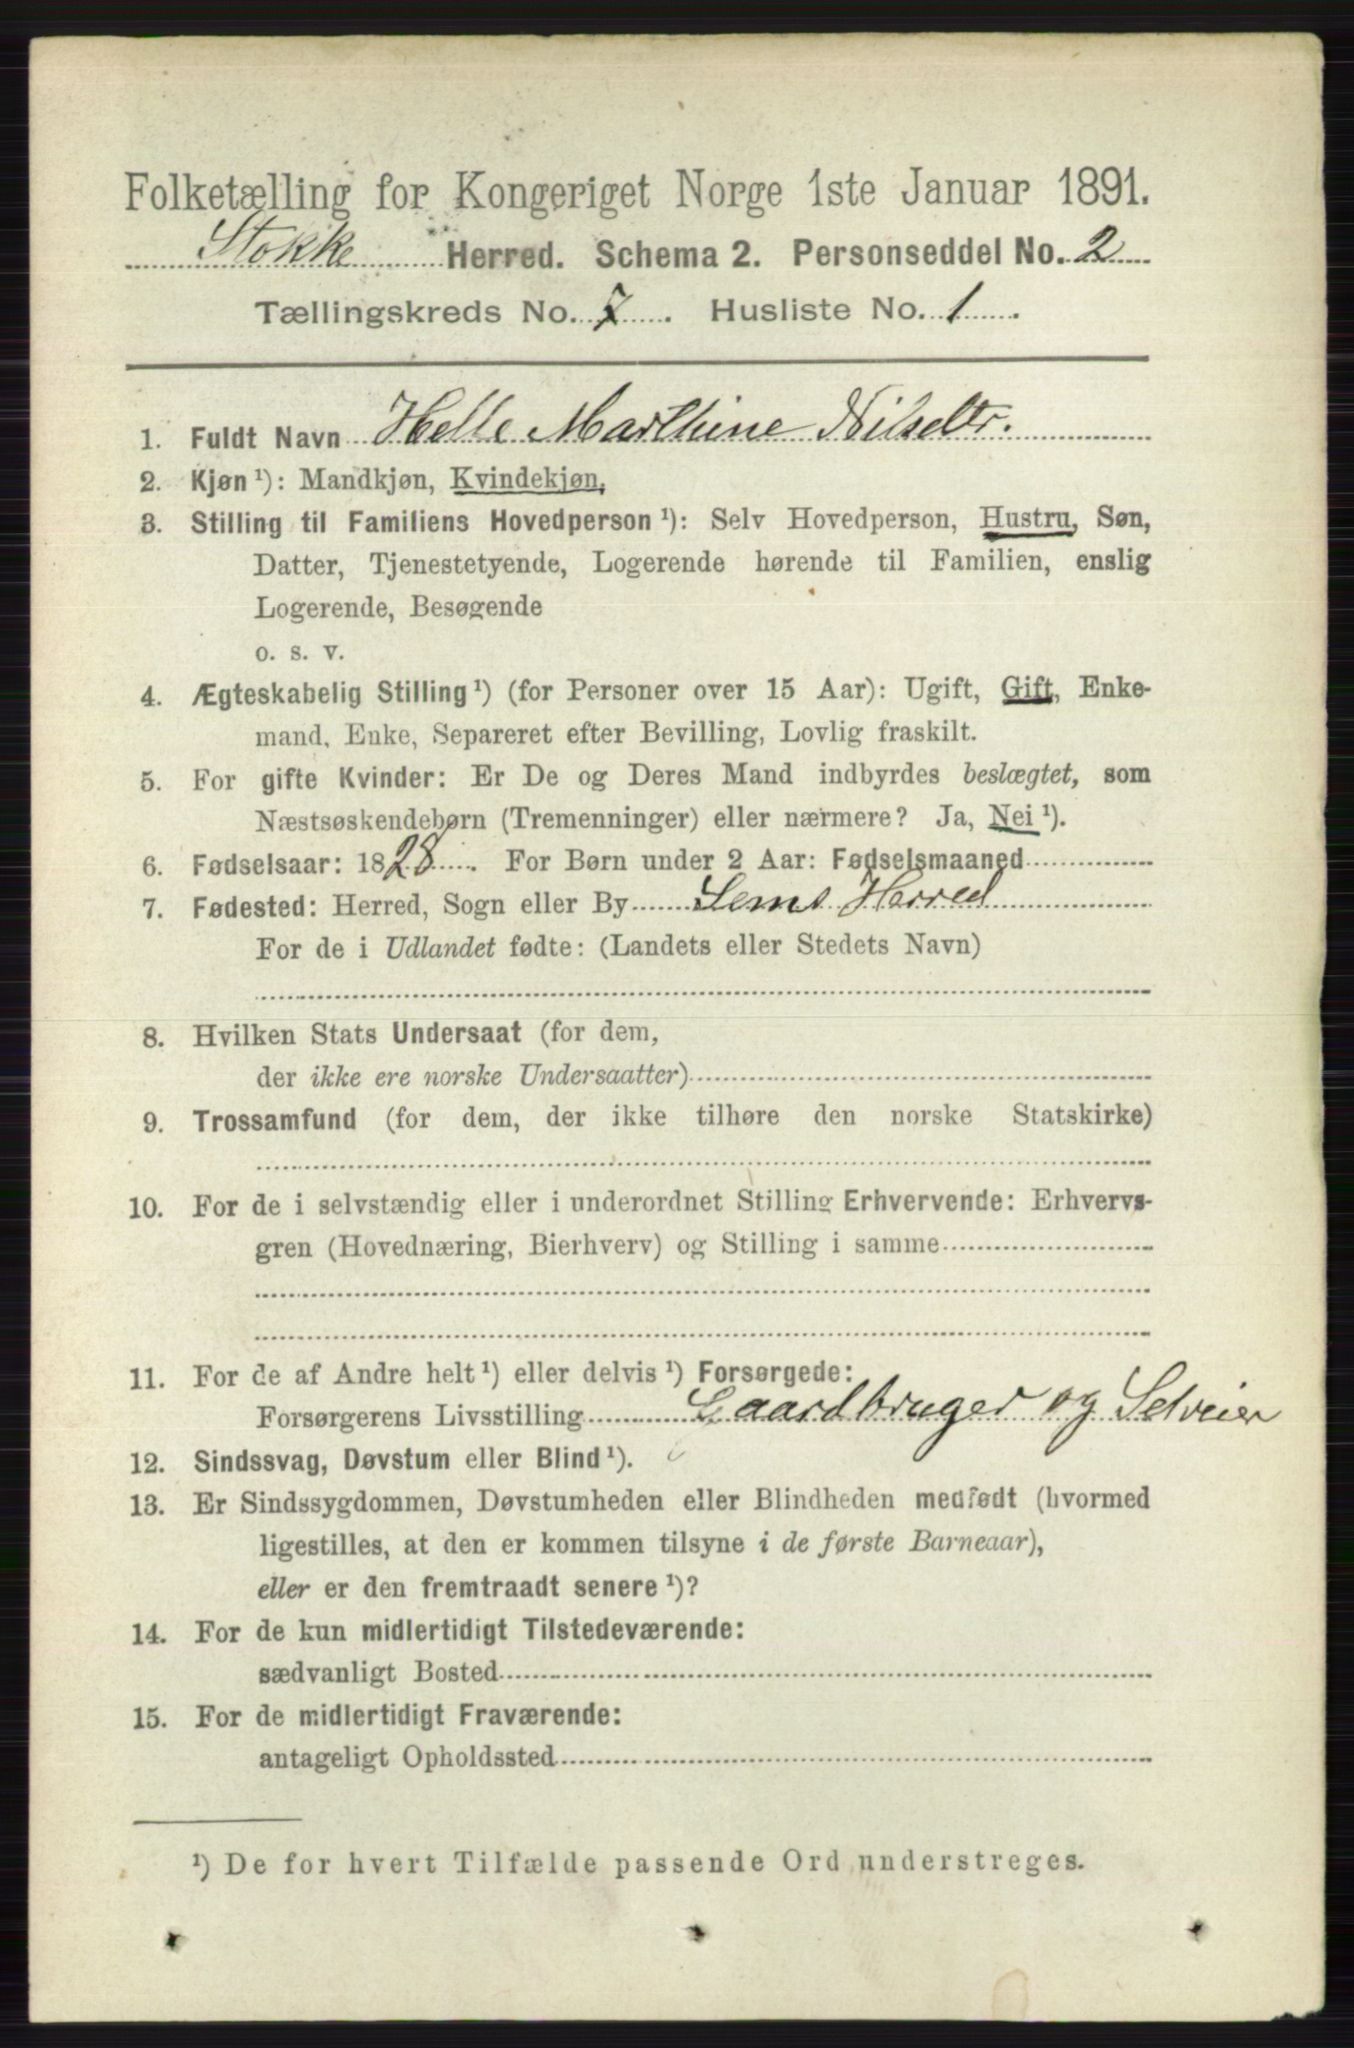 Folketælling for Kongeriget Norge 1ste Januar 1891.
Stokke Herred. Schema 2. Personseddel No. 2
Tællingskreds No. 7. Husliste No. 1.
1. Fuldt Navn Helle Marthine Nilsdtr.
2. Kjøn ¹): Mandkjøn, Kvindekjøn,
3. Stilling til Familiens Hovedperson ¹): Selv Hovedperson, Hustru, Søn,
Datter, Tjenestetyende, Logerende hørende til Familien, enslig
Logerende, Besøgende
o. s. v.
4. Ægteskabelig Stilling ¹) (for Personer over 15 Aar): Ugift, Gift, Enke-
mand, Enke, Separeret efter Bevilling, Lovlig fraskilt.
5. For gifte Kvinder: Er De og Deres Mand indbyrdes beslægtet, som
Næstsøskendebørn (Tremenninger) eller nærmere? Ja, Nei ¹).
6. Fødselsaar: 1828. For Børn under 2 Aar: Fødselsmaaned
7. Fødested: Herred, Sogn eller By Sems Herred
For de i Udlandet fødte: (Landets eller Stedets Navn)
8. Hvilken Stats Undersaat (for dem,
der ikke ere norske Undersaatter)
9. Trossamfund (for dem, der ikke tilhøre den norske Statskirke)
10. For de i selvstændig eller i underordnet Stilling Erhvervende: Erhvervs-
gren (Hovednæring, Bierhverv) og Stilling i samme
11. For de af Andre helt ¹) eller delvis ¹) Forsørgede:
Forsørgerens Livsstilling Gaardbruger og Selveier
12. Sindssvag, Døvstum eller Blind ¹).
13. Er Sindssygdommen, Døvstumheden eller Blindheden medfødt (hvormed
ligestilles, at den er kommen tilsyne i de første Barneaar),
eller er den fremtraadt senere ¹)?
14. For de kun midlertidigt Tilstedeværende:
sædvanligt Bosted
15. For de midlertidigt Fraværende:
antageligt Opholdssted
¹) De for hvert Tilfælde passende Ord understreges.